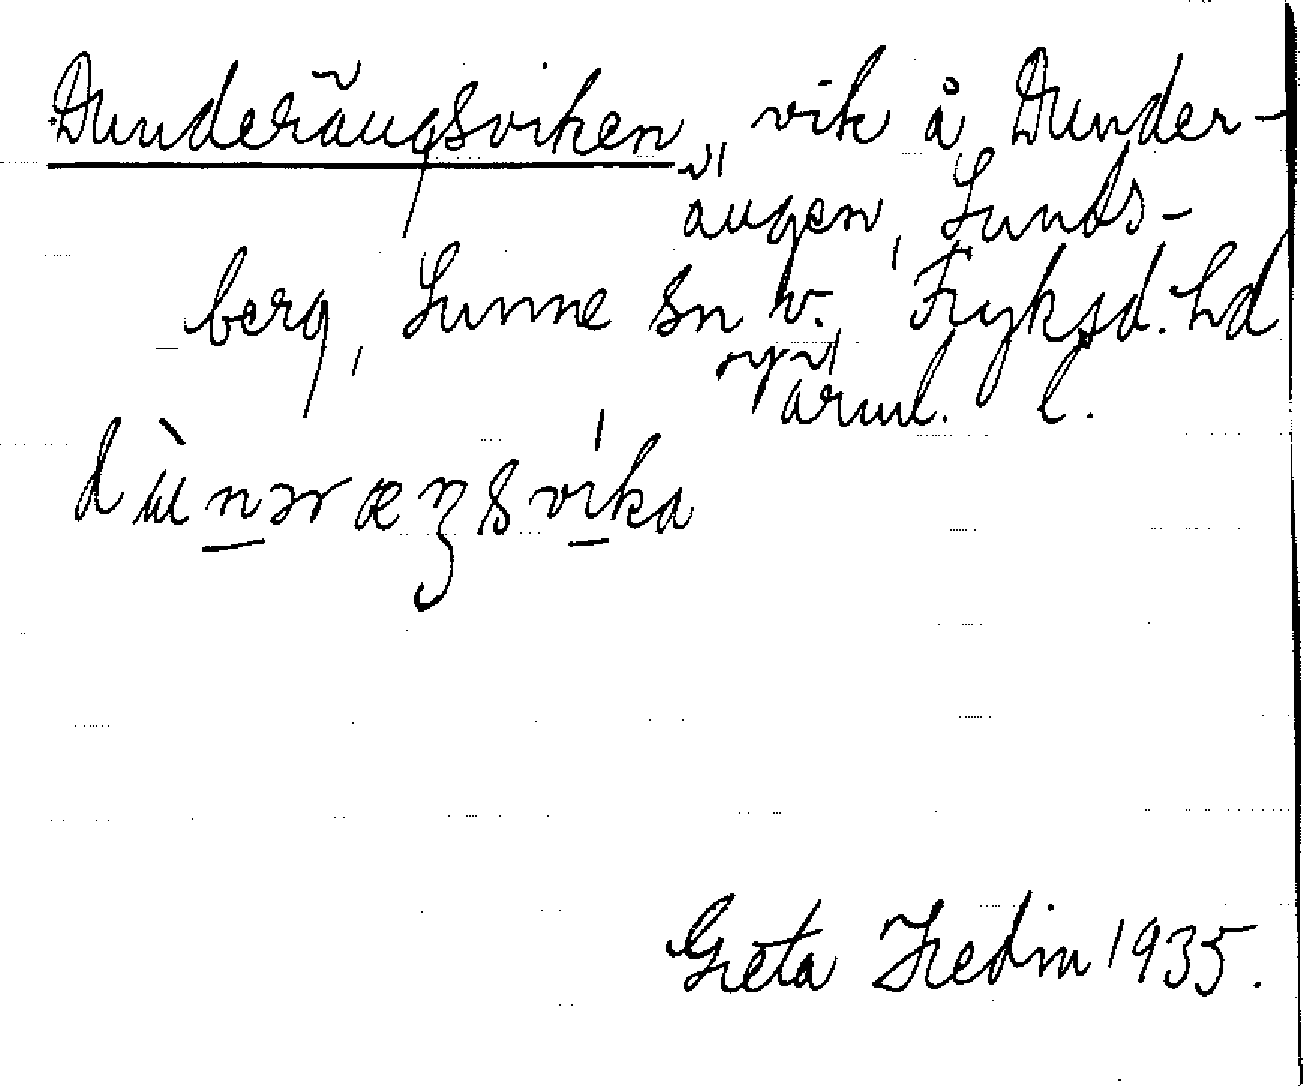 Dunderängsviken, vik å Dunder-
ängen, Lunds-
berg, Sunne sn v. Fryksd. hd
Värml. l.
dùnəræŋsvíka
Greta Hedin 1935.